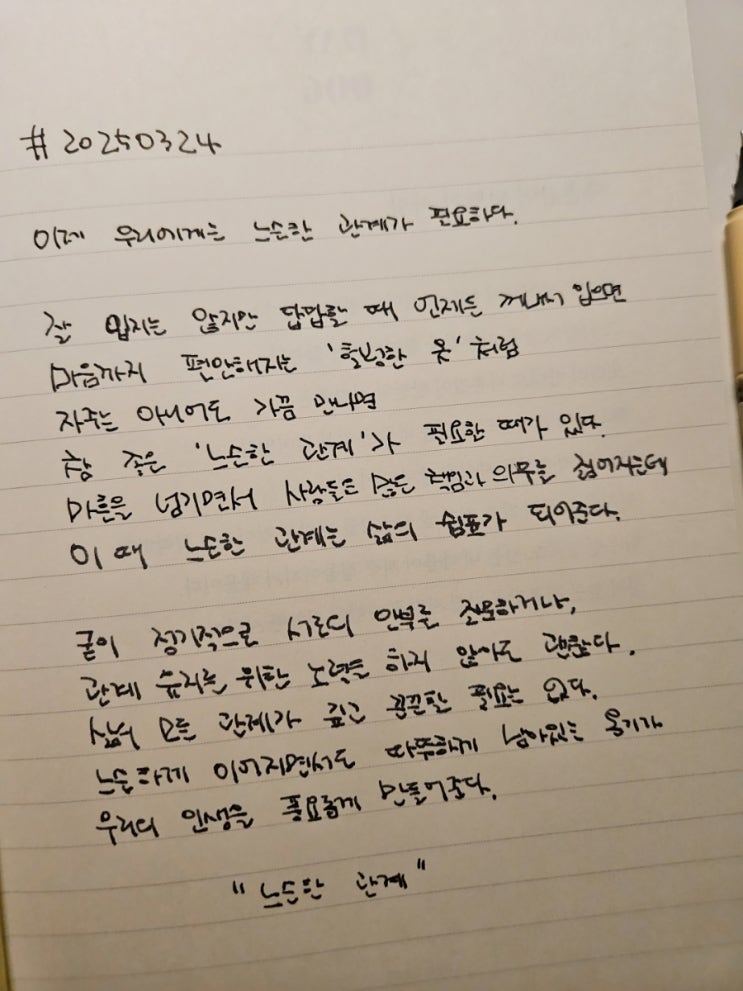 #20250324
이제 우리에게는 느슨한 관계가 필요하다.
잘 입지는 않지만 답답할 때 언제든 꺼내서 입으면
마음까지 편안해지는 '헐렁한 옷'처럼
자주는 아니어도 가끔 만나면
참 좋은 '느슨한 관계'가 필요한 때가 있다.
마흔을 넘기면서 사람들은 많은 책임과 의무를 짊어지는데
이 때 느슨한 관계는 삶의 쉼표가 되어준다.
굳이 정기적으로 서로의 안부를 전문하거나,
관계 유지를 위한 노력을 하지 않아도 괜찮다.
삶의 모든 관계가 깊고 끈끈할 필요는 없다.
느슨하게 이어지면서도 따뜻하게 남아있는 온기가
우리의 인생을 풍요롭게 만들어준다.
"느슨한 관계"